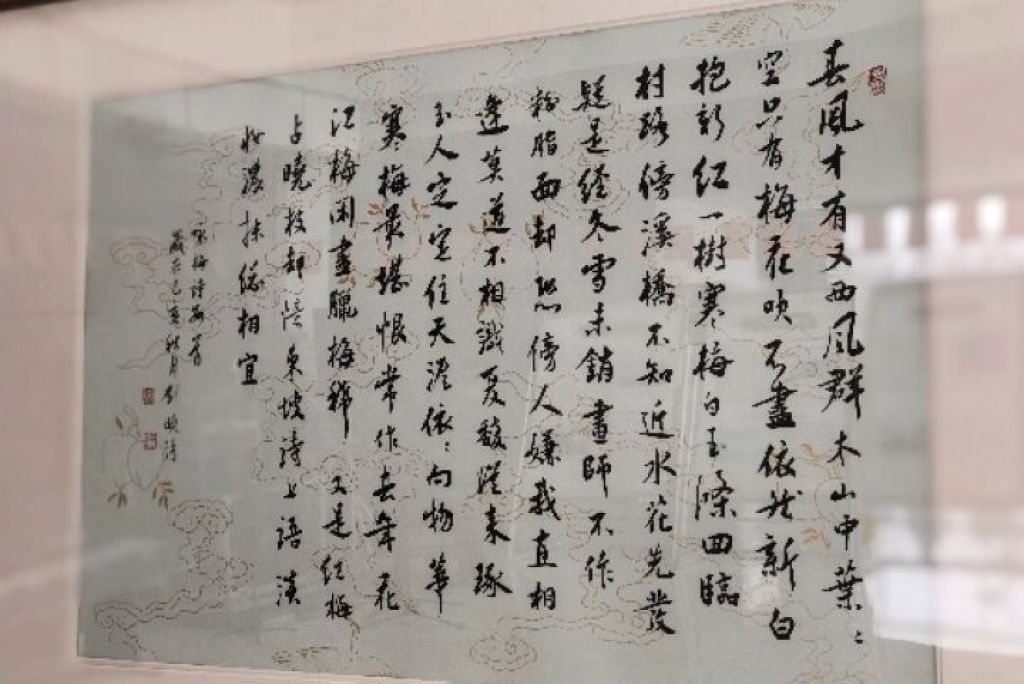 春風才有又西風群木山中葉〻
空只有梅花吹不盡依然新白
抱新紅一樹寒梅白玉條迥臨
村路傍溪橋不知近水花先發
疑是經冬雪未銷畫師不作
粉脂面却恐傍人嫌我直相
逢莫道不相識夏馥從來琢
玉人定定住天涯依〻向物華
寒梅最堪恨常作去年花
江梅閑盡臘梅稀又是紅梅
占曉枝却憶東坡詩上語淡
妝濃抹總相宜
咏梅詩數首
歲在己亥秋月劉